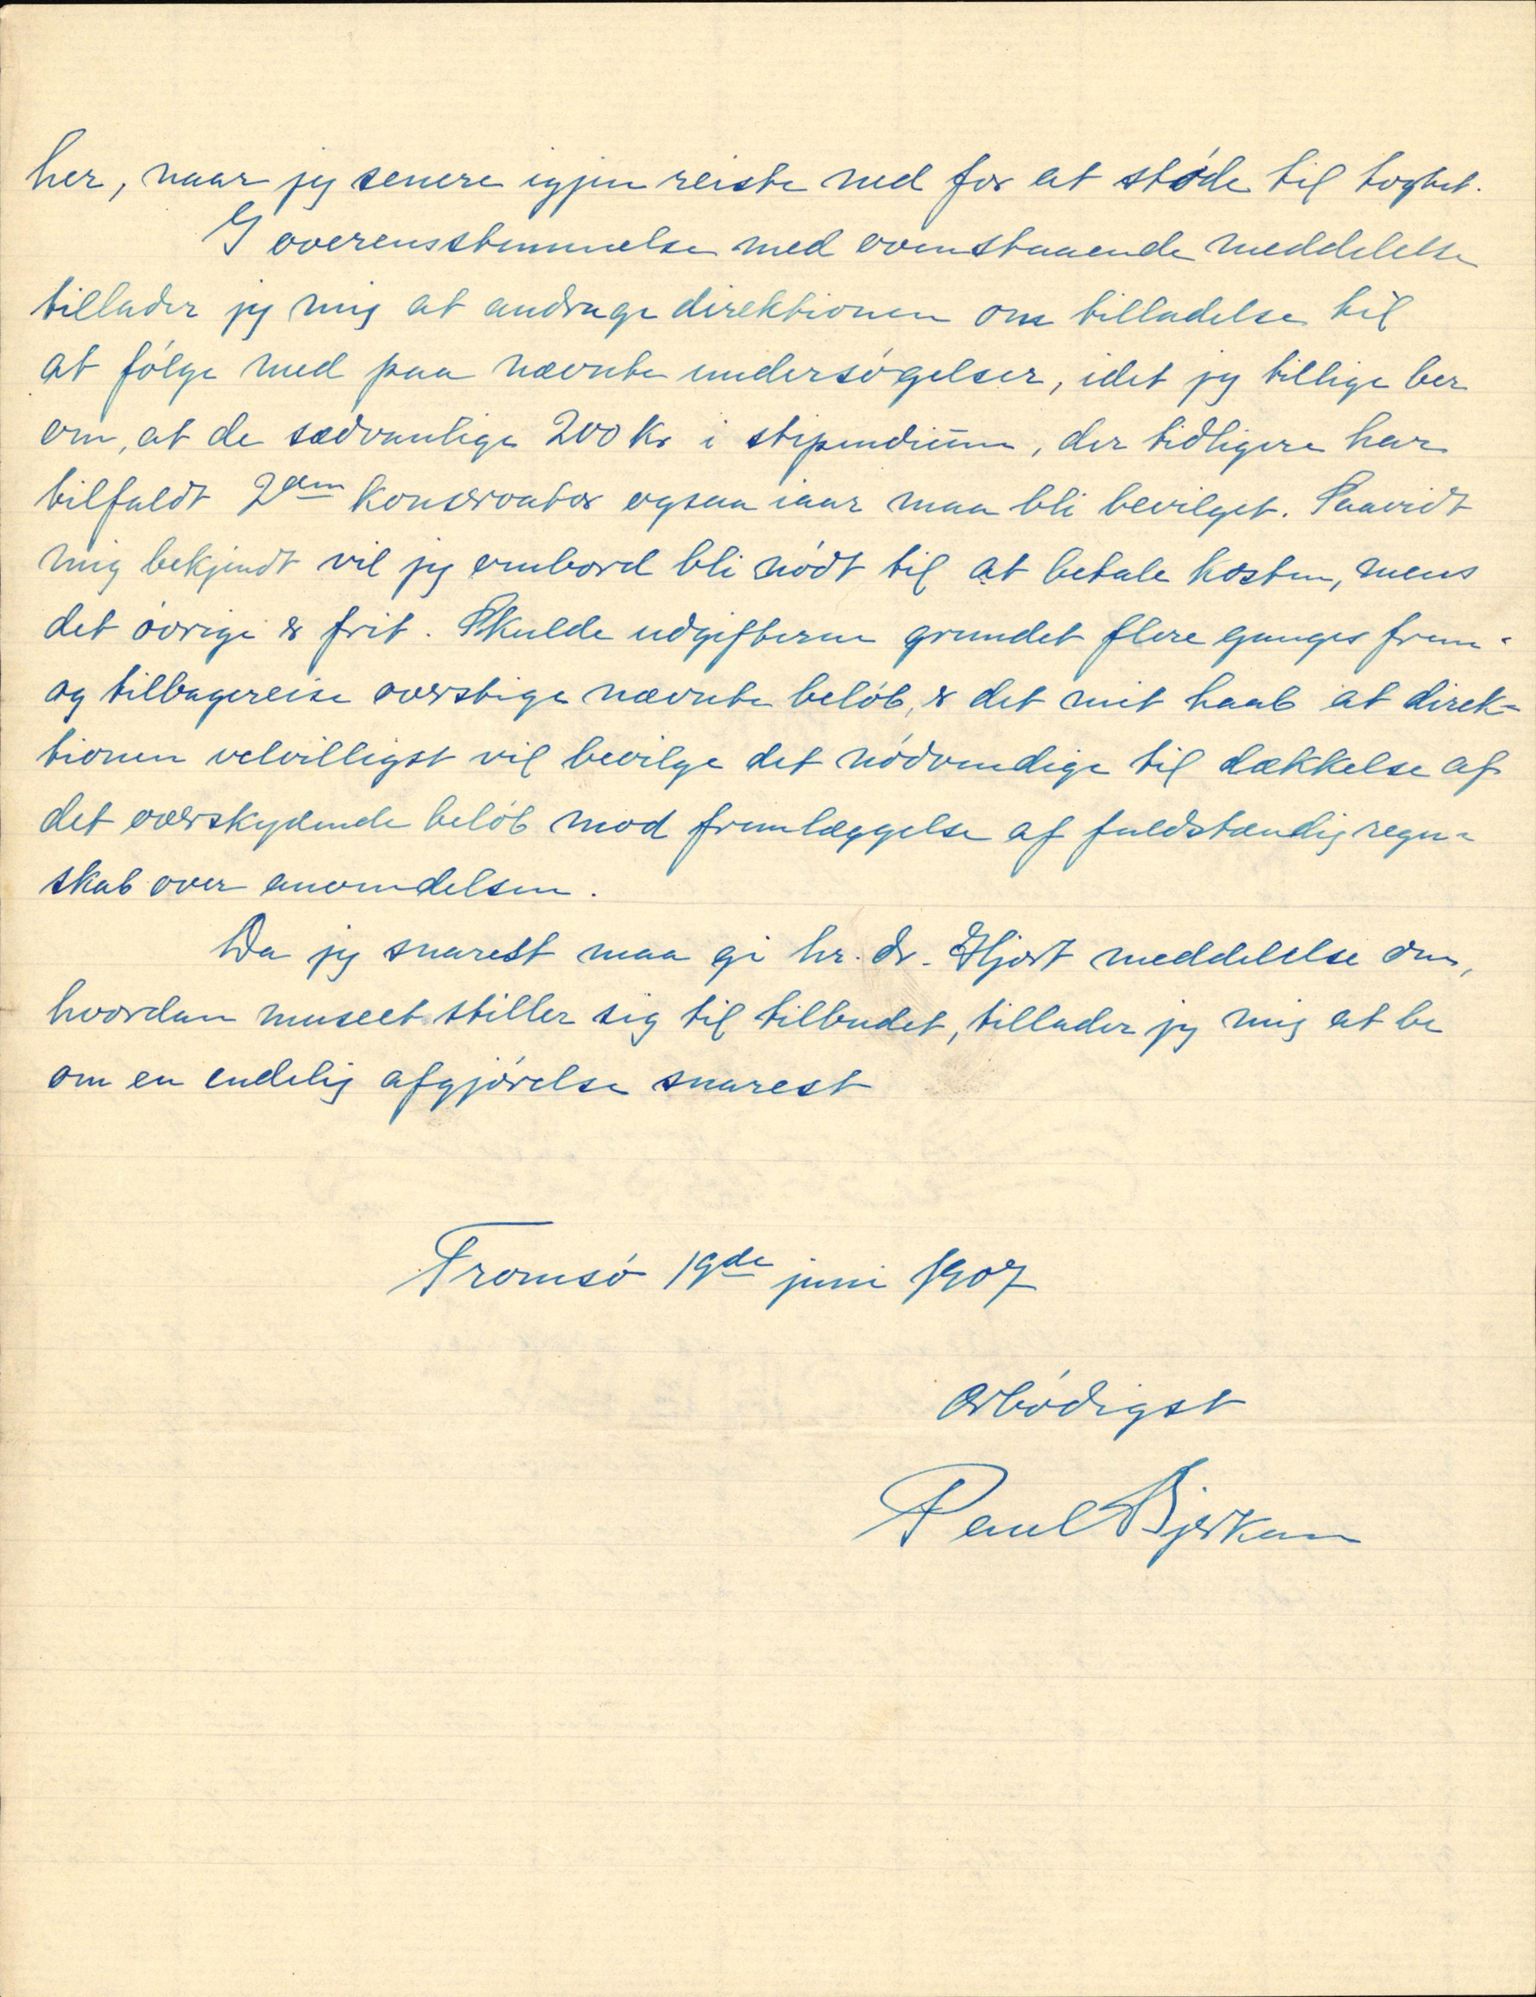 her, naar jeg senere igjen reiste ned for at støde til togtet.
I overensstemmelse med ovenstaaende meddelelse
tillader jeg mig at andrage direktionen om tilladelse til
at følge med paa nævnte undersøgelser, idet jeg tillige ber
om, at de sædvanlige 200 kr i stipendium, der tidligere har
tilfaldt 2den konservator ogsaa iaar maa bli bevilget. Saavidt
mig bekjendt vil jeg ombord bli nødt til at betale kosten, mens
det øvrige er frit. Skulde udgifterne grundet flere ganges frem-
og tilbagereise overstige nævnte beløb, er det mit haab at direk-
tionen velvilligst vil bevilge det nødvendige til dækkelse af
det overskydende beløb mod fremlæggelse af fuldstændig regn-
skab over anvendelsen.
Da jeg snarest maa gi hr. dr. Hjort meddelelse om,
hvordan museet stiller sig til tilbudet, tillader jeg mig at be
om en endelig afgjørelse snarest
Tromsø 19de juni 1907
Ærbødigst
Paul Bjerkan